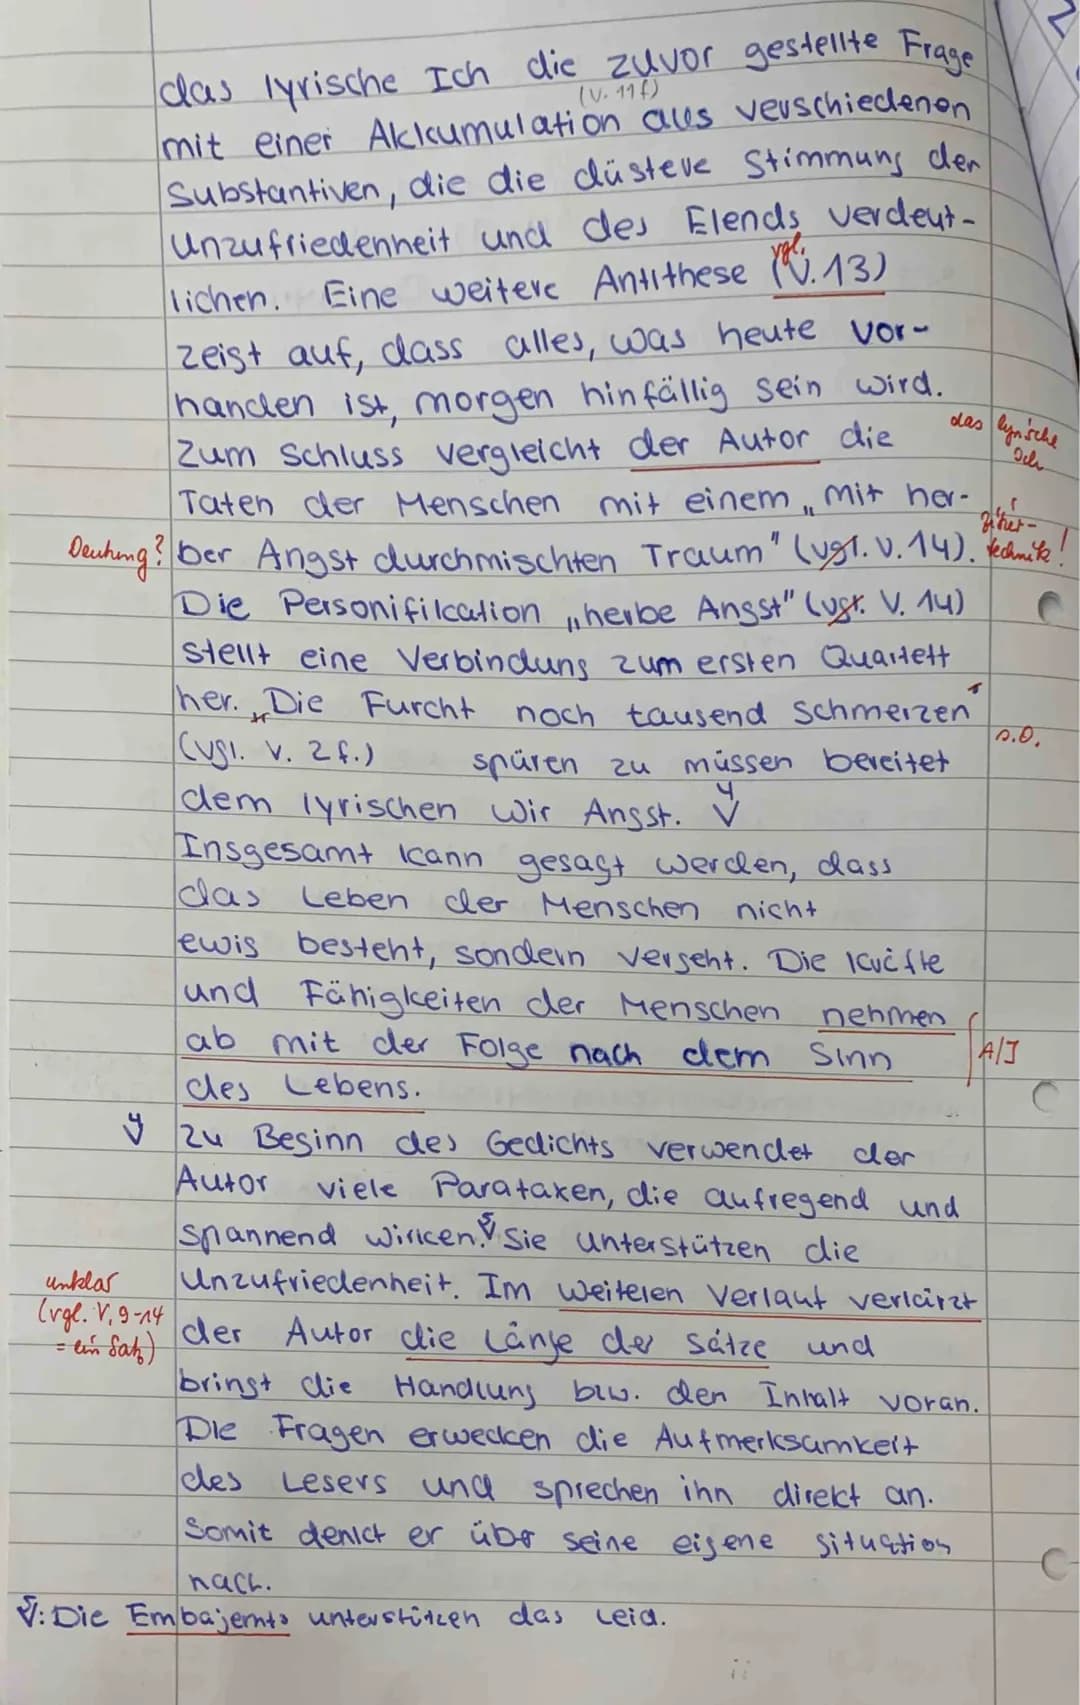 das lyrische Ich die zuvor gestellte Frage
(V. 11f)
mit einer Akkumulation aus verschiedenen
Substantiven, die die düstere Stimmung der
Unzufriedenheit und des Elends verdeut-
lichen. Eine weitere Antithese (vgl. V. 13)
zeigt auf, dass alles, was heute vor-
handen ist, morgen hinfällig sein wird.
Zum Schluss vergleicht der Autor die
das lyrische Ich
Taten der Menschen mit einem „mit her-
Deutung? ber Angst durchmischten Traum" (vgl. V. 14). Zitier-
technik!
Die Personifikation „herbe Angst" (vgl. V. 14)
stellt eine Verbindung zum ersten Quartett
her. „Die Furcht noch tausend Schmerzen"
(vgl. V. 2f.) spüren zu müssen bereitet s.o.
dem lyrischen Wir Angst.
Insgesamt kann gesagt werden, dass
das Leben der Menschen nicht
ewig besteht, sondern vergeht. Die Kräfte
und Fähigkeiten der Menschen nehmen
ab mit der Folge nach dem Sinn A/I
des Lebens.
Zu Beginn des Gedichts verwendet der
Autor viele Parataxen, die aufregend und
spannend wirken. Sie unterstützen die
Unzufriedenheit. Im weiteren Verlauf verkürzt
unklar
(vgl. V. 9-14
= ein Satz)
der Autor die Länge der Sätze und
bringt die Handlung bzw. den Inhalt voran.
Die Fragen erwecken die Aufmerksamkeit
des Lesers und sprechen ihn direkt an.
Somit denkt er über seine eigene Situation
nach.
: Die Embajemts unterstützen das Leid.